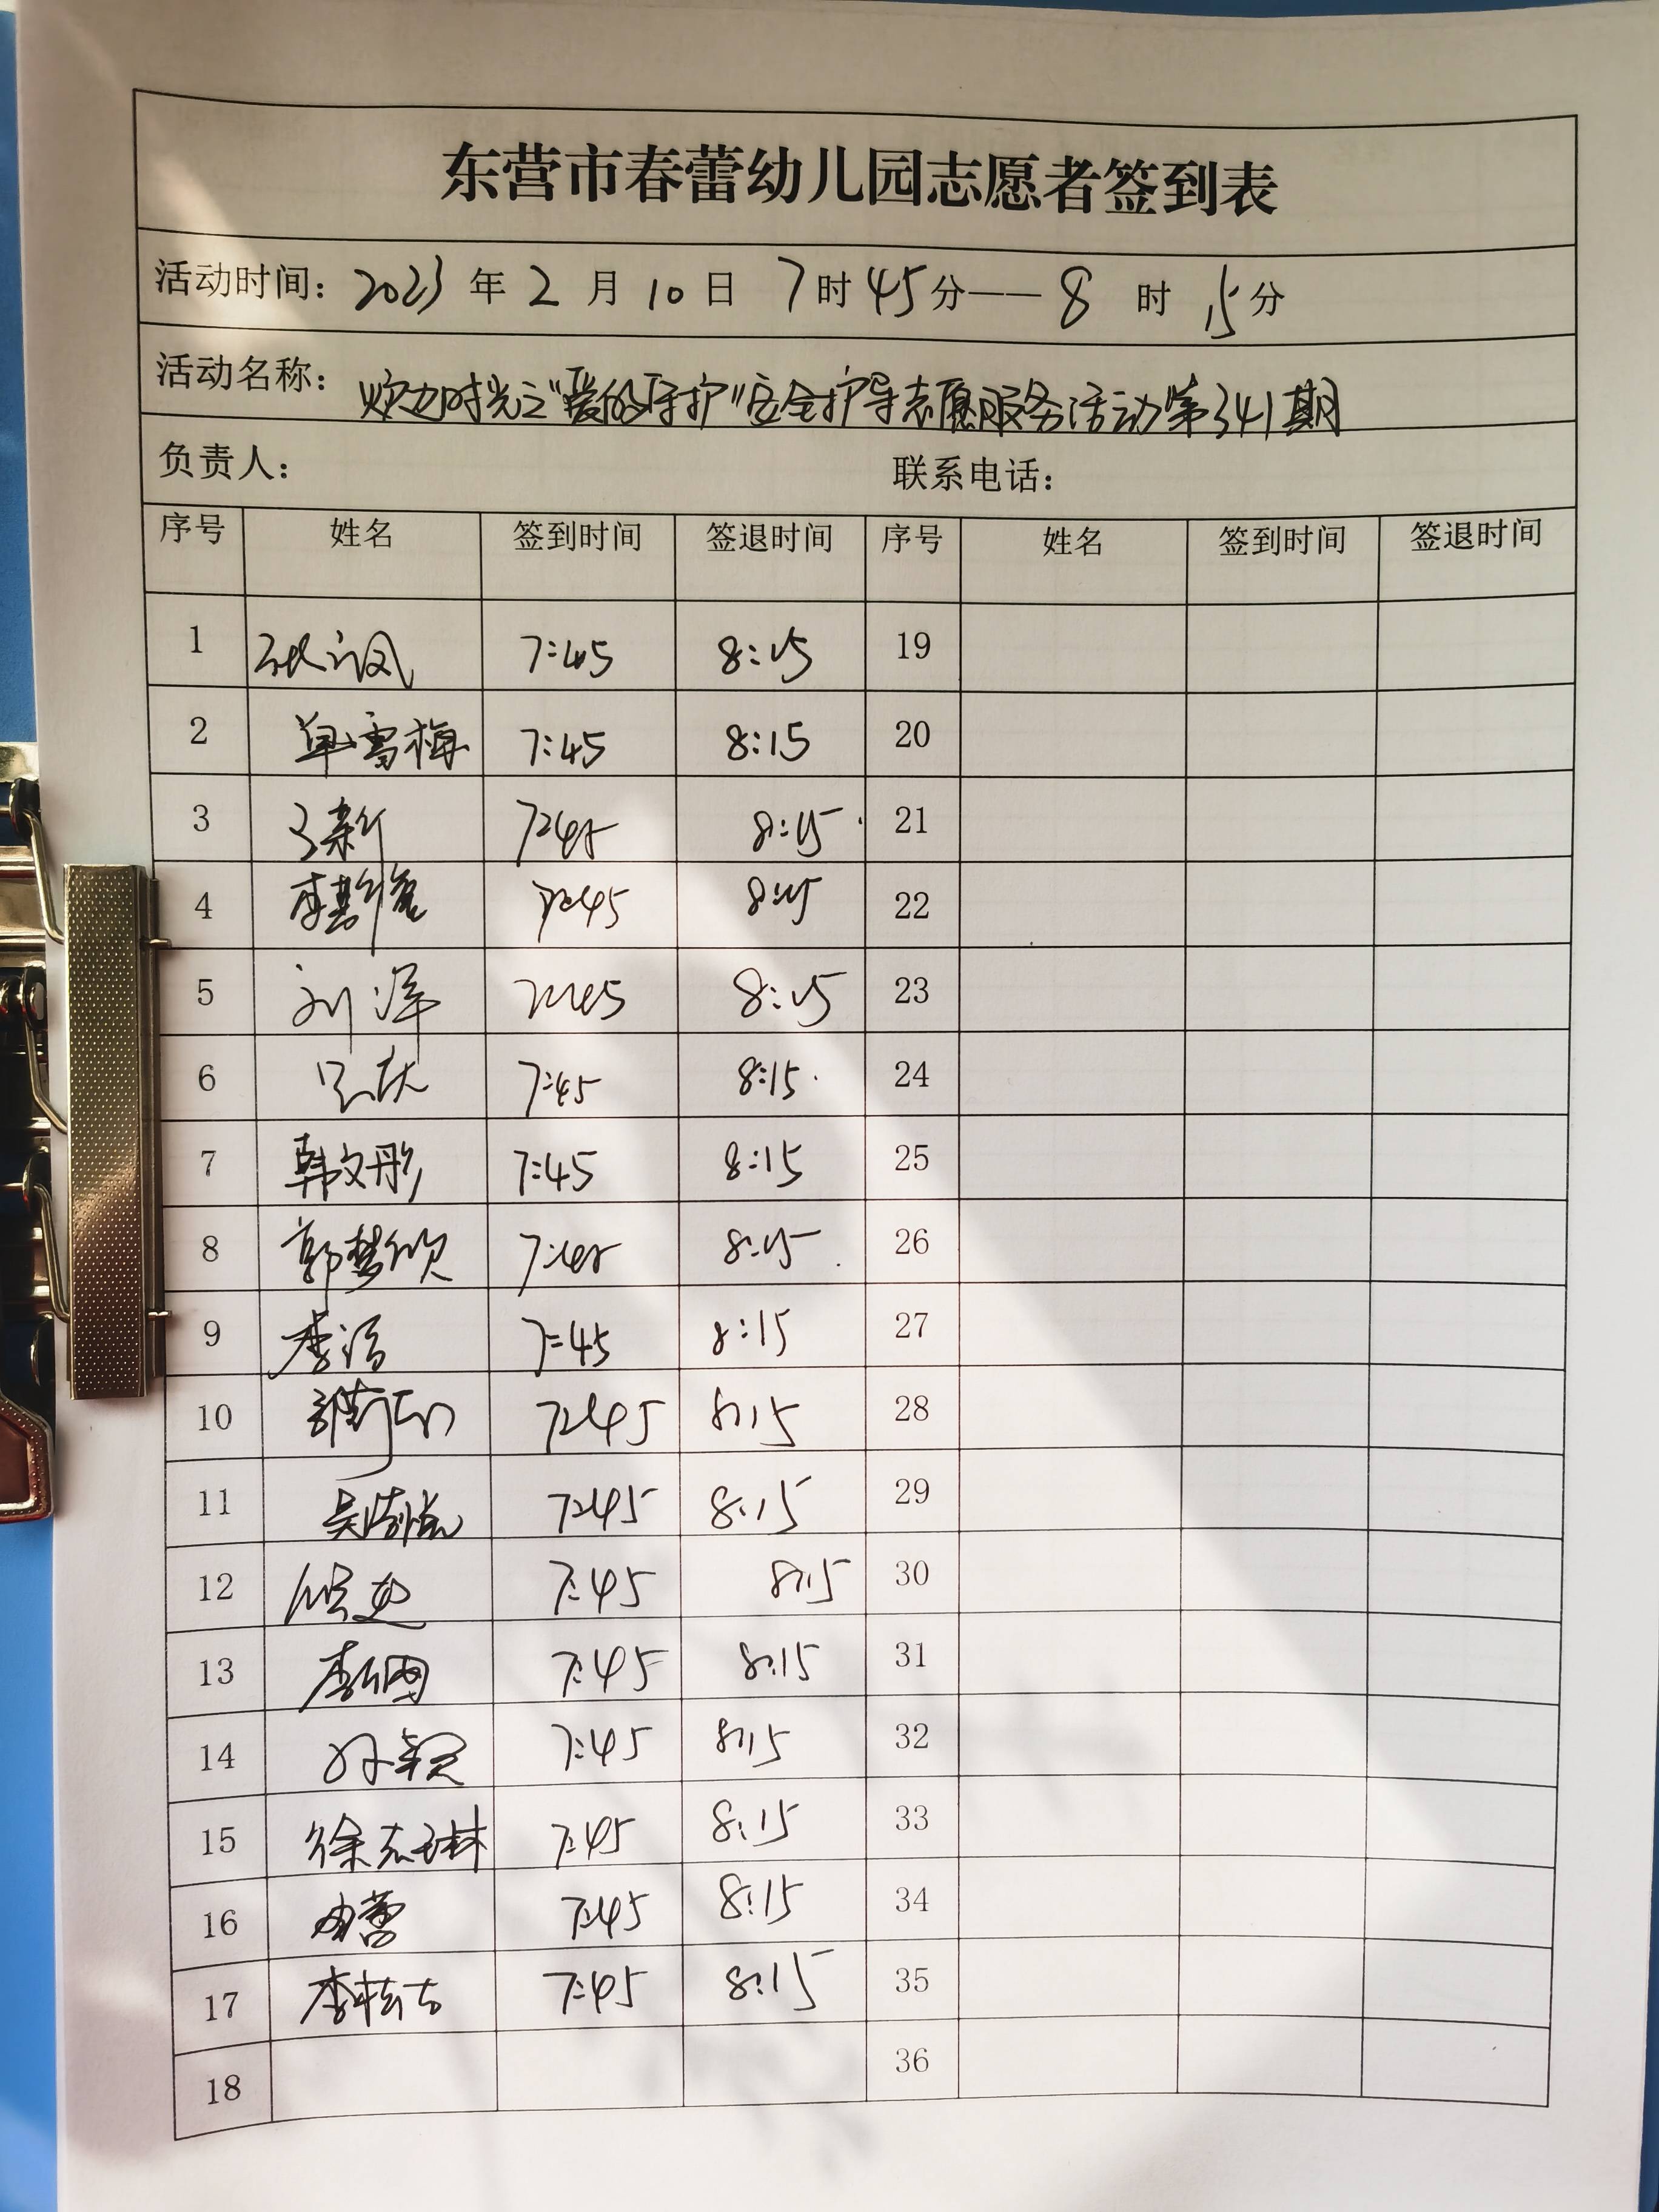 东营市春蕾幼儿园志愿者签到表
活动时间：2023年2月10日 7时45分——8时15分
活动名称：炫力时光之"爱的守护"安全护导志愿服务活动第341期
负责人： 联系电话：
序号 姓名 签到时间 签退时间 序号 姓名 签到时间 签退时间
1 7:45 8:15 19
2 单雪梅 7:45 8:15 20
3 7:45 8:15 21
4 李 7:45 8:15 22
5 刘洋 7:45 8:15 23
6 7:45 8:15 24
7 韩文彤 7:45 8:15 25
8 郭梦欣 7:45 8:15 26
9 李洁 7:45 8:15 27
10 7:45 8:15 28
11 吴 7:45 8:15 29
12 7:45 8:15 30
13 李 7:45 8:15 31
14 孙颖 7:45 8:15 32
15 徐志琳 7:45 8:15 33
16 由蕾 7:45 8:15 34
17 李 7:45 8:15 35
18 36